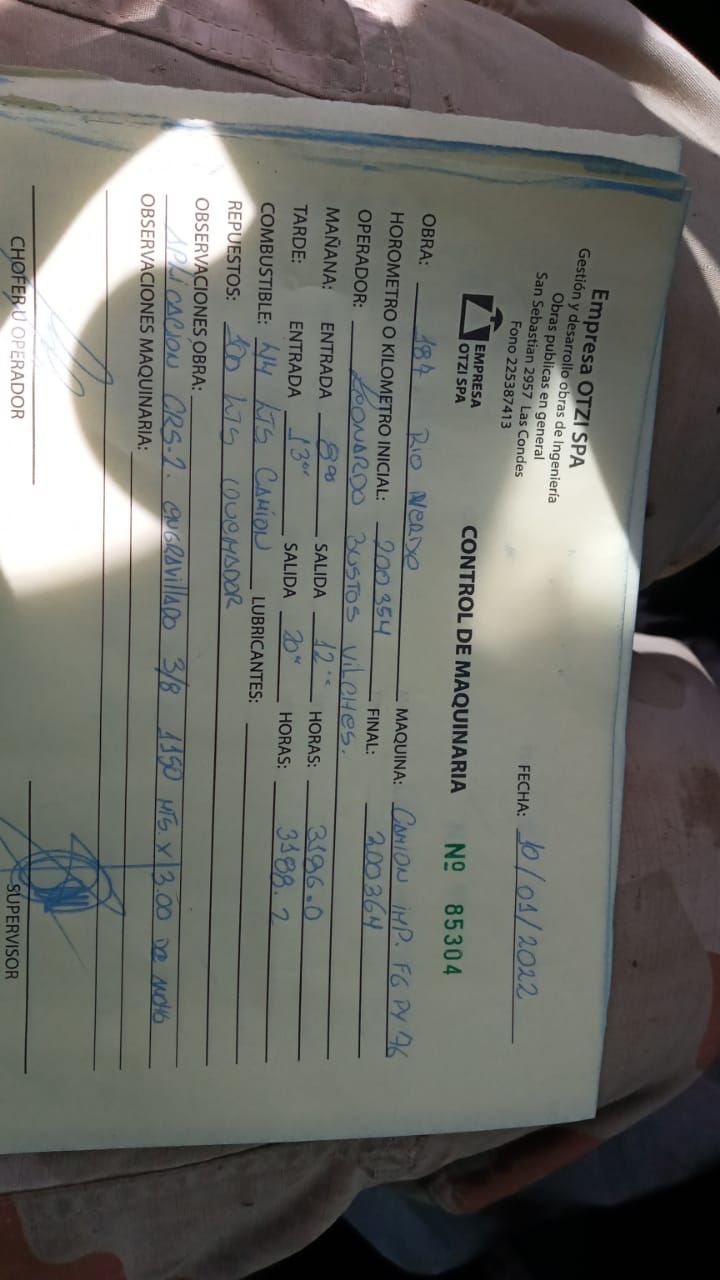 Empresa OTZI SPA
Gestión y desarrollo obras de Ingeniería
Obras publicas en general
San Sebastian 2957 Las Condes
Fono 225387413
EMPRESA
OTZI SPA
FECHA: 10/01/2022
CONTROL DE MAQUINARIA Nº 85304
OBRA: 187 RIO VERDE MAQUINA: CAMION IMP. FG PY 76
HOROMETRO O KILOMETRO INICIAL: 200354 FINAL: 200364
OPERADOR: LEONARDO BUSTOS VILCHES.
MAÑANA: ENTRADA 8⁰⁰ SALIDA 12⁰⁰ HORAS: 3186.0
TARDE: ENTRADA 13⁰⁰ SALIDA 20⁰⁰ HORAS: 3188.2
COMBUSTIBLE: 44 LTS CAMION LUBRICANTES:
REPUESTOS: 100 LTS QUEMADOR
OBSERVACIONES OBRA:
APLICACION CRS-2. ENGRAVILLADO 3/8 1150 MTS. X 3.00 DE ANCHO
OBSERVACIONES MAQUINARIA:
CHOFER U OPERADOR SUPERVISOR